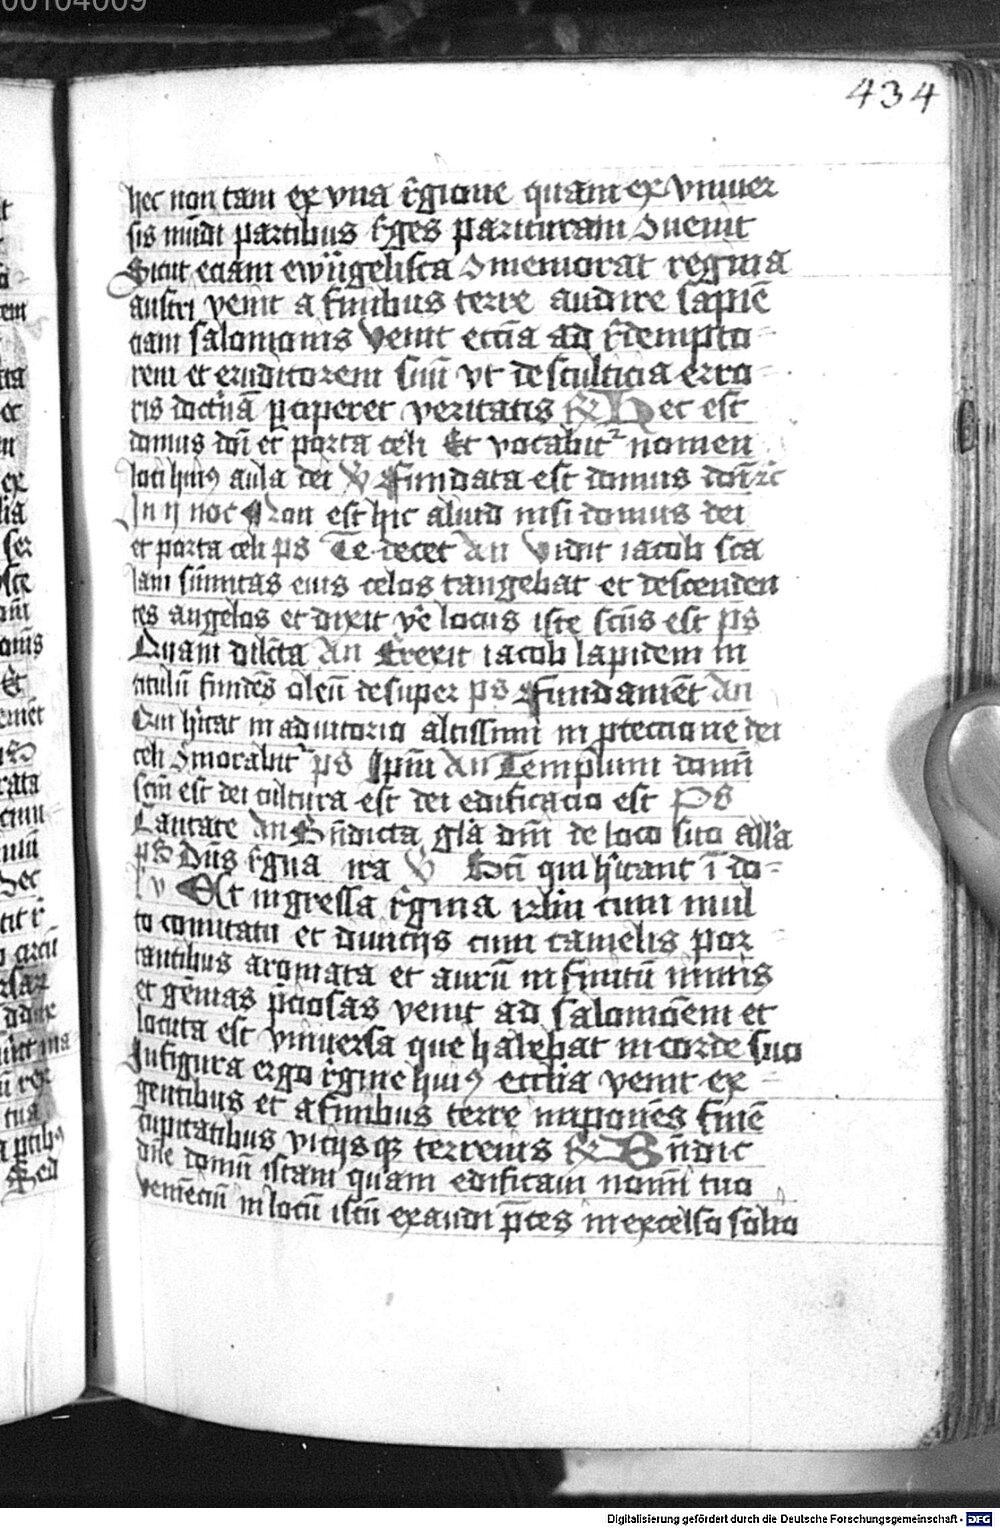 00104009
434
hec non tam ex vna r̄gione quam ex vniuer
sis mūdi partibus r̄ges parituram ꝯuenit
Sicut eciam ewūgelista ꝯmemorat regina
austri venit a finibus terre audire sapiē
ciam salomonis Venit eccīa ad r̄dempto-
rem et eruditorem suū vt de stulticia erro
ris doctīnā ꝑciperet veritatis R Hec est
domus dnī et porta celi Et vocabit᷑ nomen
loci huiꝰ aula dei V Fundata est domus dnī rc
In ij noc Non est hic aliud nisi domus dei
et porta celi ps Te decet An Vidit iacob sca
lam sūmitas eius celos tangebat et descenden
tes angelos et dixit vē locus iste scūs est ps
Quam dilcta An Erexit iacob lapidem in
titulū fundēs oleū desuper ps Fundamēt An
Qui hītat in adiutorio altissimi in ꝓtectione dei
celi ꝯmorabit᷑ ps Ipm̄ An Templum domī
scm̄ est dei cultura est dei edificacio est Ps
Cantate An Bn̄dicta glā dnī de loco suo allā
ps Dn̄s r̄gna ira V Bti qui hītant ī do-
Et ingressa r̄gina irlm cum mul
to comitatu et diuicijs cum camelis por
tantibus aromata et aurū infinitū nimis
et gēmas p̄ciosas venit ad salomōem et
locuta est vniuersa que habebat in corde suo
In figura ergo r̄gine huiꝰ ecclīa venit ex
gentibus et a finibus terre imponēs finē
cupitatibus vicijsqꝫ terrenis R Bn̄dic
dnē domū istam quam edificaui nomī tuo
veniēciū in locū istū exaudi p̄ces in excelso solio
Digitalisierung gefördert durch die Deutsche Forschungsgemeinschaft - DFG